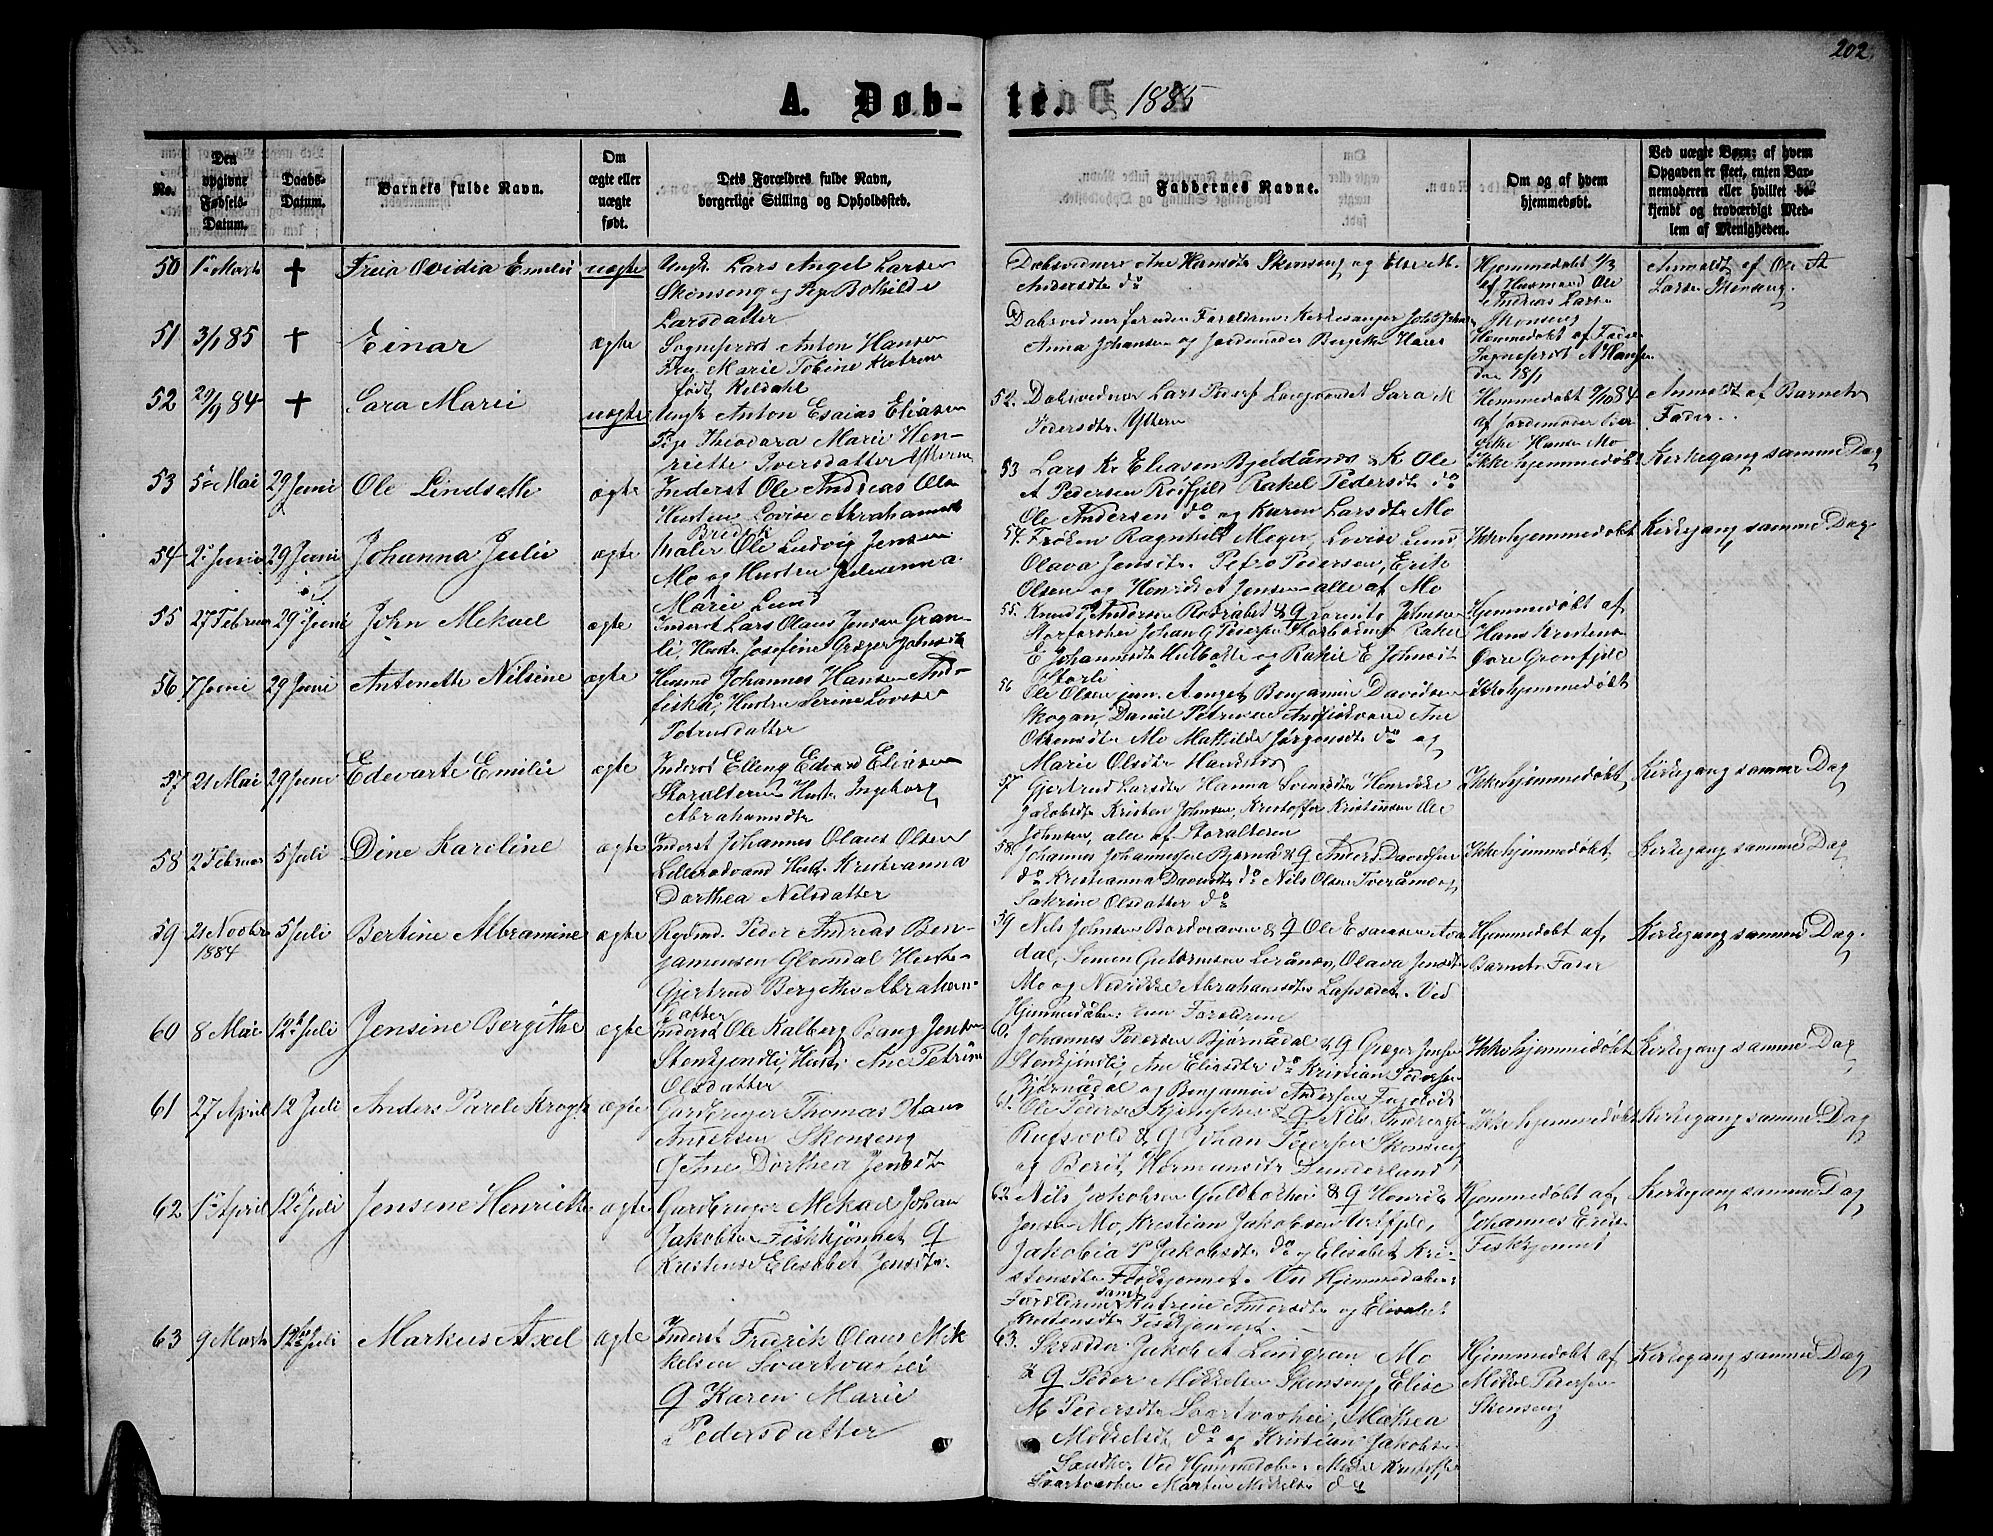 202.
A. Døb-
te. 1885
No.
Den
opgivne
Fødsels-
Datum.
Daabs-
Datum.
Barnets fulde Navn.
Om
ægte eller
uægte
født.
Dets Forældres fulde Navn,
borgerlige Stilling og Opholdssted.
Faddernes Navne.
Om og af hvem
hjemmedøbt.
Ved uægte Børn: af hvem
Opgaven er skeet, enten Bar-
nemoderen eller hvilket be-
kjendt og troværdigt Med-
lem af Menigheden.
50 1ste Marts † Freia Ovidia Emilie uægte Ungk. Lars Angel Larsen
Skonseng og Pige Bothilde
Larsdatter
Dabsvidner Ane Hansdtr Skonseng og Else M.
Andersdtr do
Hjemmedøbt
af Husmand Ole
Andreas Larsen
Skonseng
Anmeldt af Ole A
Larsen Skonseng.
51 3/1 85 † Einar ægte Sogneprest Anton Hansen
Fru Marie Tobine Katrine
født Keldahl
Dabsvidner foruden Forældrene: Kirkesanger
Anna Johansen og Jordemoder Bergitte Hans
Hjemmedøbt af Fader
Sogneprest A Hansen
den 18/1
52 29/9 84 † Sara Marie uægte Ungk Anton Esaias Eliasen
Pige Theodora Marie Hen-
riette Iversdatter Ytteren
52. Dabsvidner Lars Peders Langvandet Sara M
Pedersdtr. Ytteren
Hjemmedøbt 9/10 84
af Jordemoder Ber-
gitte Hansen Mo
Anmeldt af Barnets
Fader.
53 5te Mai 29 Juni Ole Lindseth ægte Inderst Ole Andreas Olsen
Hustru Lovise Abrahamsdtr
Bredek
53 Lars Kr Eliasen Bjeldånes & K Ole
A Pedersen Røsfjeld Rakel Pedersdtr do
Ole Andersen do og Karen Larsdtr Mo
Ikke hjemmedøbt Kirkegang samme Dag
54 2 Juni 29 Juni Johanna Julie ægte Maler Ole Ludvig Jensen
Mo og Hustru
Marie Lund
54. Frøken Ragnhild Meyer, Lovise Lund
Olava Jensdtr. Petro Pedersen, Erik
Olsen og Henrik A Jensen alle af Mo
Ikke hjemmedøbt Kirkegang samme Dag
55 27 Februar 29 Juni John Mekael ægte Inderst Lars Olaus Jensen Gran-
li, Hustr. Josefine Græger Johnsdtr
55. Knud Andersen & Q
Johan G Pedersen Rakel
E Johansdtr og Rakel E Johnsdtr
Storli
Hjemmedøbt af
Hans Kristens
Øvre Grønfjeld
56 7 Juni 29 Juni Antonette Nilsine ægte Husmd Johannes Hansen And-
fiskå, Hustru Serine Lovise
Petersdatter
56 Ole Olsen jun. Aenget Benjamin Davidsen
Skogan, Daniel Petersen Andfiskvand Ane
Olsensdtr Mo Mathilde Jørgensdtr do og
Marie Olsdtr
Ikke hjemmedøbt
57 21 Mai 29 Juni Edevarte Emilie ægte Inderst Elling Edvard Eliasen
Storalteren Hustr. Ingeborg
Abrahamsdtr
57 Gjertrud Larsdtr Hanna Svensdtr Henrikke
Jakobsdtr Kristen Johnsen, Kristoffer Kristensen Ole
Johnsen, alle af Storalteren
Ikke hjemmedøbt Kirkegang samme Dag
58 2 Februar 5 Juli Dine Karoline ægte Inderst Johannes Olaus Olsen
Hustr. Kristianna
Dorthea Nilsdatter
58 Johannes Johannesen Bjørnå & Q Anders Davidsen
do Kristianna Davidsdtr do Nils Olsen Tverånes
Sakrine Olsdatter do
Ikke hjemmedøbt, Kirkegang samme Dag
59 21 Novbr
1884 5 Juli Bertine Albramine ægte Rydnd. Peder Andreas Ben-
jaminsen Glomdal Hustr.
Gjertrud Bergithe Abraham-
datter
59 Nils Johnsen & Q Ole Esaiassen
dal, Simon Guttormsen Leirånes, Olava Jensdtr
Mo og Abrahamsdtr Lapsødet. Ved
Hjemmedåben: kun Forældrene
Hjemmedøbt af
Barnets Fader
Kirkegang samme Dag
60 8 Mai 12te Juli Jensine Bergithe ægte Inderst Ole Kalberg Bang Jensen
Stenkjøndli, Hustr. Ane Petrine
Olsdatter
60. Johannes Pedersen Bjørnådal & Q Græger Jensen
Stenkjøndli, Ane Eliasdtr do Kristian Pedersen
Bjørnådal og Benjamin Andersen Fagervik
Ikke hjemmedøbt Kirkegang samme Dag
61 27 April 12 Juli Anders Parele Krogh ægte Gardbruger Thomas Hans
Andersen Skonseng
Q Ane Dorthea Jensdtr
61. Ole Pedersen & Q Nils
Rufsvold & Q Johan Pedersen Skonseng
og Berit Hermansdtr Dunderland
Ikke hjemmedøbt Kirkegang samme Dag
62 1ste April 12te Juli Jensine Henriette ægte Gardbruger Mekael Johan
Jakobsen Fiskkjønnet Q
Elisabet Jensdtr.
62 Nils Jakobsen & Q Henrik
Jensen Mo, Kristian Jakobsen Urtfjeld,
Jakobia P Jakobsdtr do og Elisabet Kri-
stensdtr Fiskkjønnet. Ved Hjemmedaben:
Forældrene samt Katrine Andersdtr og Elisabet
Kristensdtr Fiskkjønnet.
Hjemmedøbt af
Johannes Eriks
Fiskkjønnet
Kirkegang samme Dag
63 9 Marts 12te Juli Markus Axel ægte Inderst Fredrik Olaus Mik
kelsen Svartvashei
Q Karen Marie
Pedersdatter
63. Skrædder Jakob A Lindgren Mo
& Q Peder Mikkelsen Skonseng, Elise
M Pedersdtr Svartvashei, Mathea
Mikkelsdtr do og Kristian Jakobs
Ved Hjemmedåben: Mikkel
Svartvashei Martin Mikkelsen do
Hjemmedøbt af
Mikkel Pedersen
Skonseng
Kirkegang samme Dag